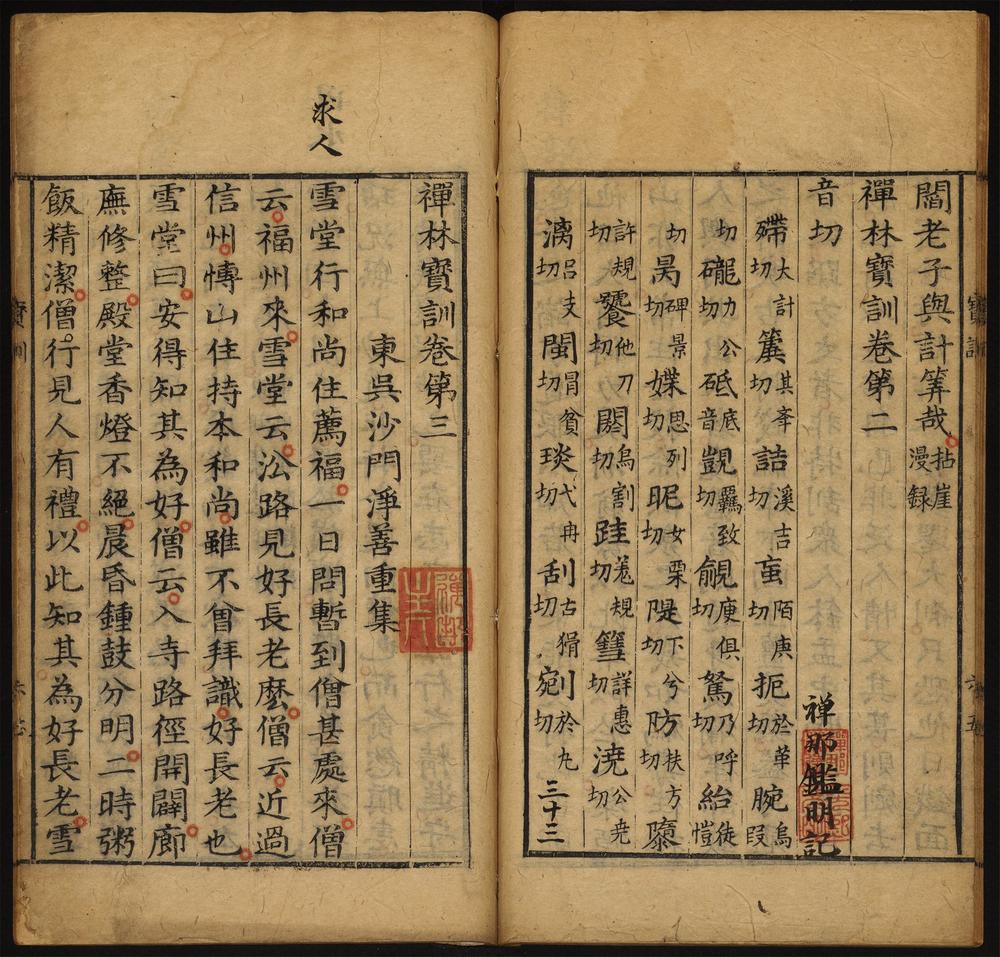 閻老子與計筭哉 拈崖漫録
禪林寶訓卷第二
音切
禅那鑑明記
殢大計切 詰溪吉切 䖟陌庚切 扼於革切 腕烏段
切 礲力公切 砥音底 覬覊致切 覦庾俱切 駑乃呼切 紿徒愷
切 昺碑景切 媟思列切 昵女栗切 隄下兮切 防扶方切 隳
許規切 饕他刀切 閼烏割切 跬羗規切 篲詳惠切 澆公堯切
漓呂支切 閩冒貧切 琰弋冉切 刮古猾切 剜於丸切 三十三
寶訓
求人
禪林寶訓卷第三
東吳沙門淨善重集
雪堂行和尚住薦福一日問暫到僧甚處來僧
云福州來雪堂云㳂路見好長老麽僧云近過
信州博山住持本和尚雖不曾拜識好長老也
雪堂曰安得知其為好僧云入寺路徑開闢廊
廡修整殿堂香燈不絕晨昏鍾鼓分明二時粥
飯精潔僧行見人有禮以此知其為好長老雪